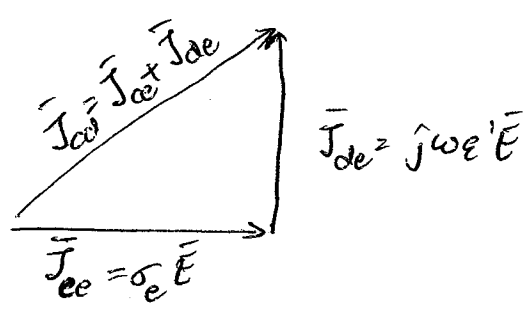 J̄cd = J̄ce + J̄de
J̄de = jωε'Ē
J̄ce = σeĒ